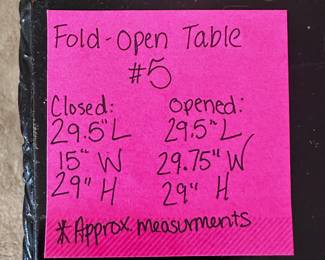 Fold-Open Table
#5
Closed: Opened:
29.5"L 29.5"L
15" W 29.75"W
29" H 29" H
*Approx. measurments